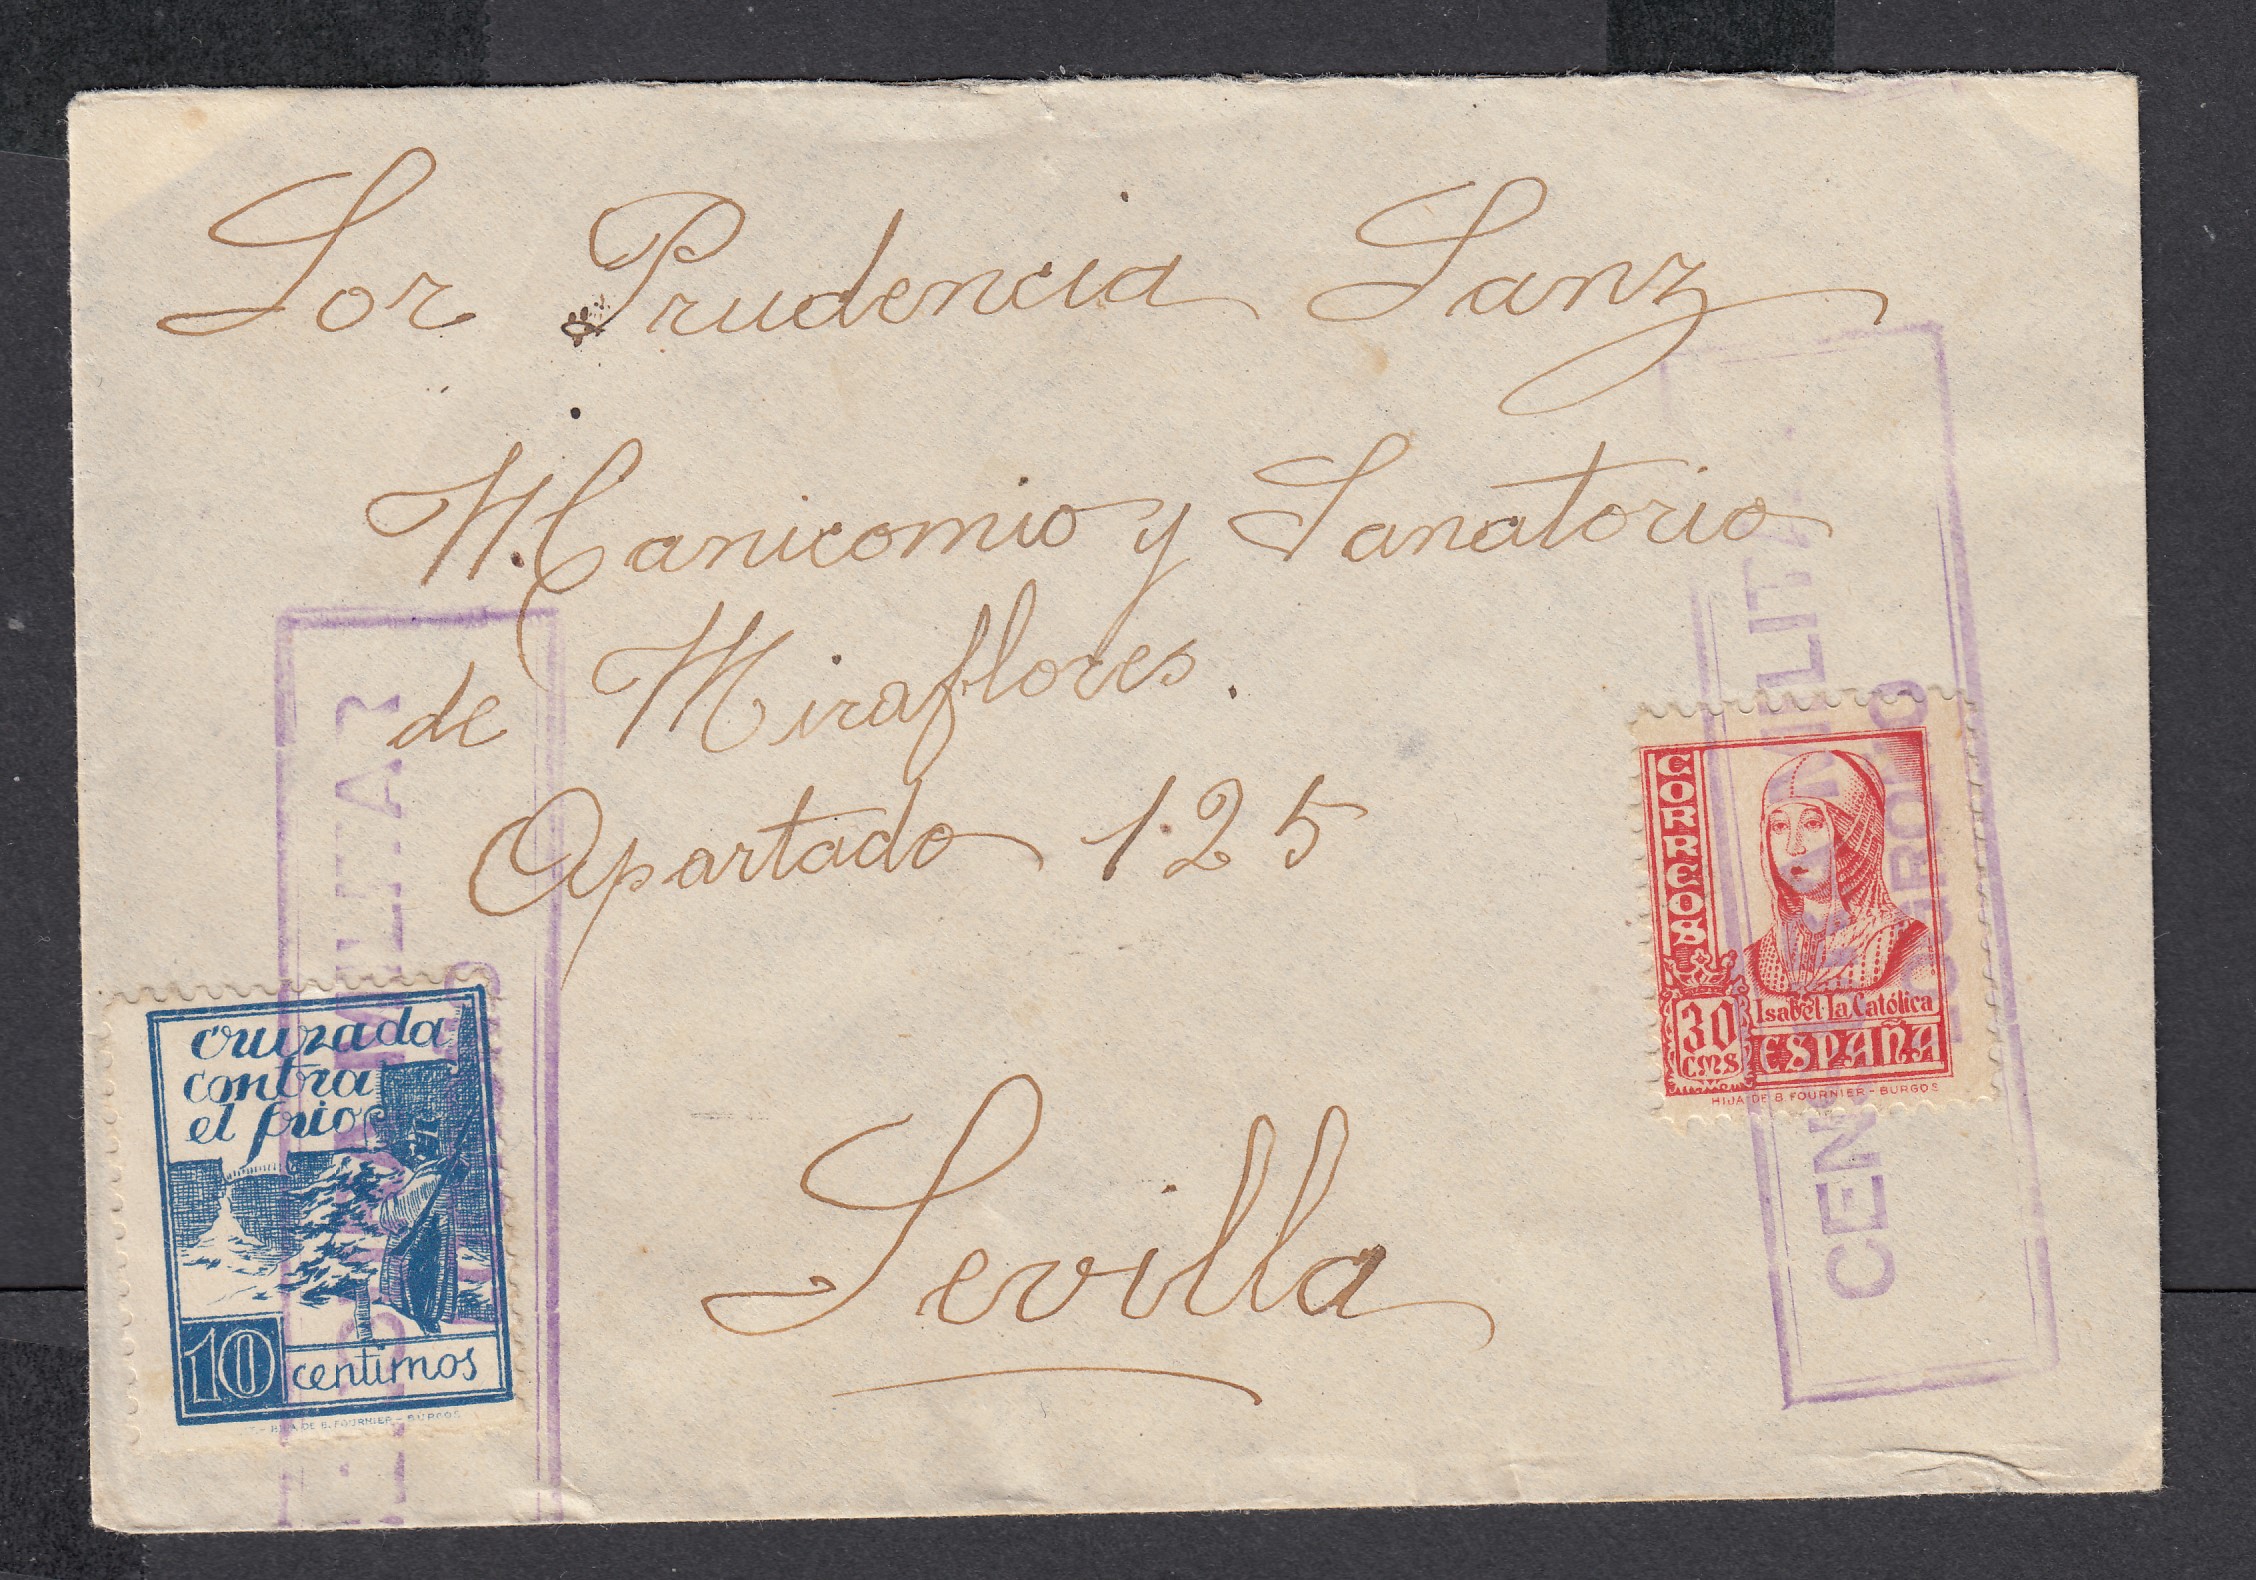 Sor Prudencia Sanz
Manicomio y Sanatorio
de Miraflores.
Apartado 125
Sevilla
CORREOS
30
CMS
Isabel la Católica
ESPAÑA
HIJA DE B. FOURNIER - BURGOS
CENSURA MILITAR
LOGROÑO
cruzada
contra
el frio
10
centimos
HIJA DE B. FOURNIER - BURGOS
MILITAR